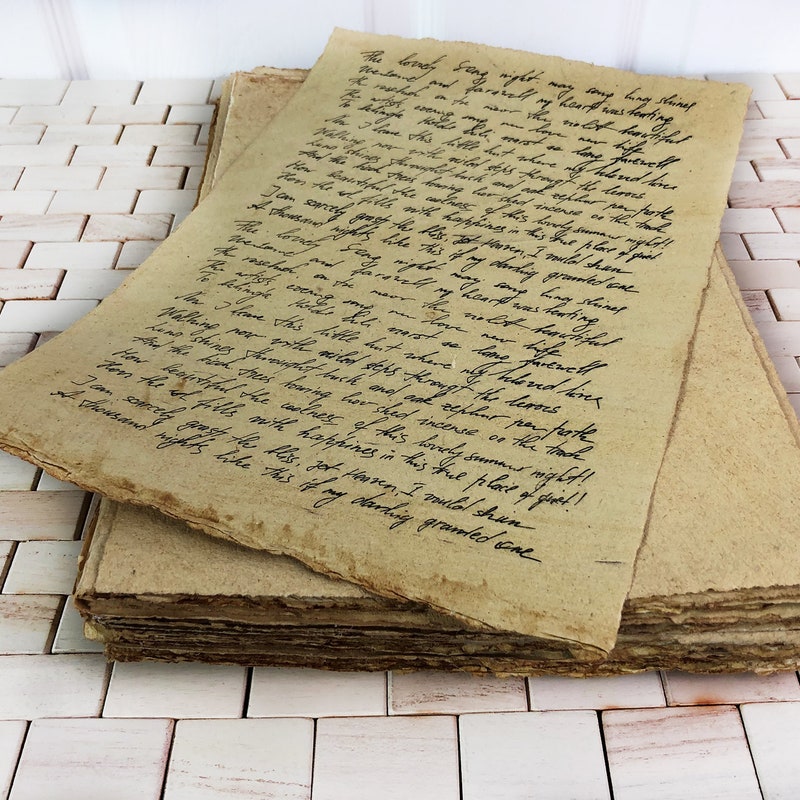 The lovely Song night may song long shines
Welcome and farewell my heart was beating
the rosebud on the the violet beautiful
The artists evening one new love new life
To belinde Holds Lili most so long farewell
Now I leave this little hut where my beloved lives
Walking now with veiled steps through the leaves
Luna shines through bush and oak zephyr per path
And the birch trees bowing low shed incense on the track
How beautiful the coolness of this lovely summer night!
How the soul fills with happiness in this true place of quiet!
I can scarcely grasp the bliss, yet Heaven, I would shun
A thousand nights like this if my darling granted one
The lovely Song night may song long shines
Welcome and farewell my heart was beating
the rosebud on the the violet beautiful
The artists evening one new love new life
To belinde Holds Lili most so long farewell
Now I leave this little hut where my beloved lives
Walking now with veiled steps through the leaves
Luna shines through bush and oak zephyr per path
And the birch trees bowing low shed incense on the track
How beautiful the coolness of this lovely summer night!
How the soul fills with happiness in this true place of quiet!
I can scarcely grasp the bliss, yet Heaven, I would shun
A thousand nights like this if my darling granted one